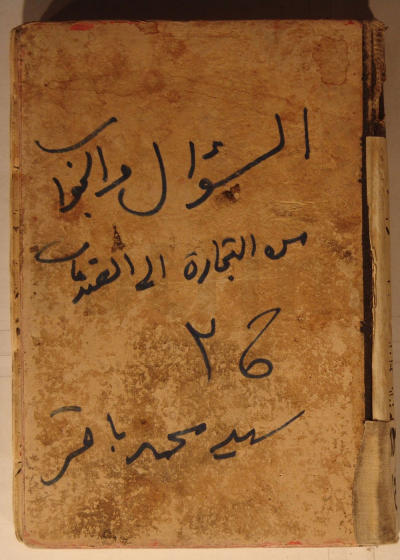 السؤال والجواب
من التجارة الى القضاء
ج ٢
سيد محمد باقر